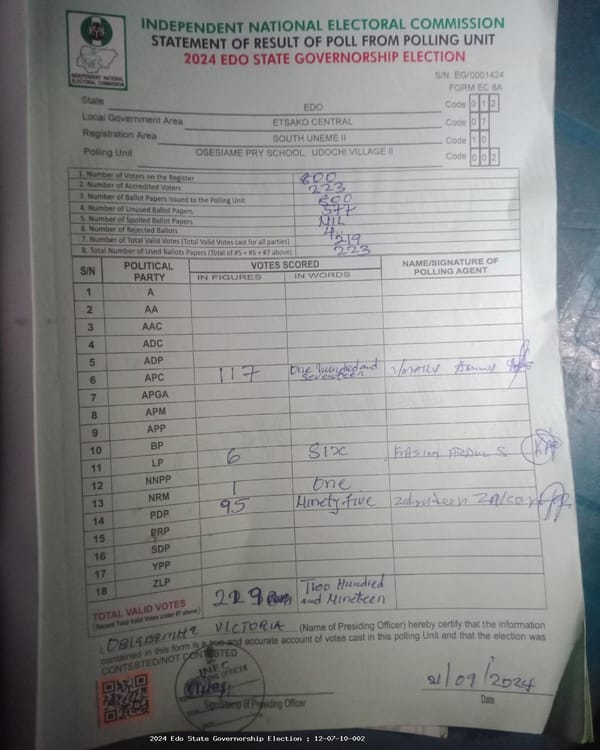 INDEPENDENT NATIONAL ELECTORAL COMMISSION
STATEMENT OF RESULT OF POLL FROM POLLING UNIT
2024 EDO STATE GOVERNORSHIP ELECTION
INEC
INDEPENDENT NATIONAL ELECTORAL COMMISSION
S/N: EG/0001424
FORM EC 8A
State EDO Code 0 1 2
Local Government Area ETSAKO CENTRAL Code 0 7
Registration Area SOUTH UNEME II Code 1 0
Polling Unit OSESIAME PRY SCHOOL, UDOCHI VILLAGE II Code 0 0 2
1. Number of Voters on the Register 600
2. Number of Accredited Voters 223
3. Number of Ballot Papers Issued to the Polling Unit 600
4. Number of Unused Ballot Papers 377
5. Number of Spoiled Ballot Papers NIL
6. Number of Rejected Ballots 4
7. Number of Total Valid Votes (Total Valid Votes cast for all parties) 219
8. Total Number of Used Ballots Papers (Total of #5 + #6 + #7 above) 223
S/N POLITICAL PARTY VOTES SCORED NAME/SIGNATURE OF POLLING AGENT
IN FIGURES IN WORDS
1 A
2 AA
3 AAC
4 ADC
5 ADP
6 APC 117 One hundred and seventeen
7 APGA
8 APM
9 APP
10 BP
11 LP 6 Six
12 NNPP 1 One
13 NRM
14 PDP 95 Ninety five
15 PRP
16 SDP
17 YPP
18 ZLP
TOTAL VALID VOTES 219 Two Hundred and Nineteen
(Record Total Valid Votes under #7 above)
I, VICTORIA (Name of Presiding Officer) hereby certify that the information
contained in this form is a true and accurate account of votes cast in this polling Unit and that the election was
CONTESTED/NOT CONTESTED
INEC
Sign/Stamp of Presiding Officer
21/09/2024
Date
2024 Edo State Governorship Election : 12-07-10-002